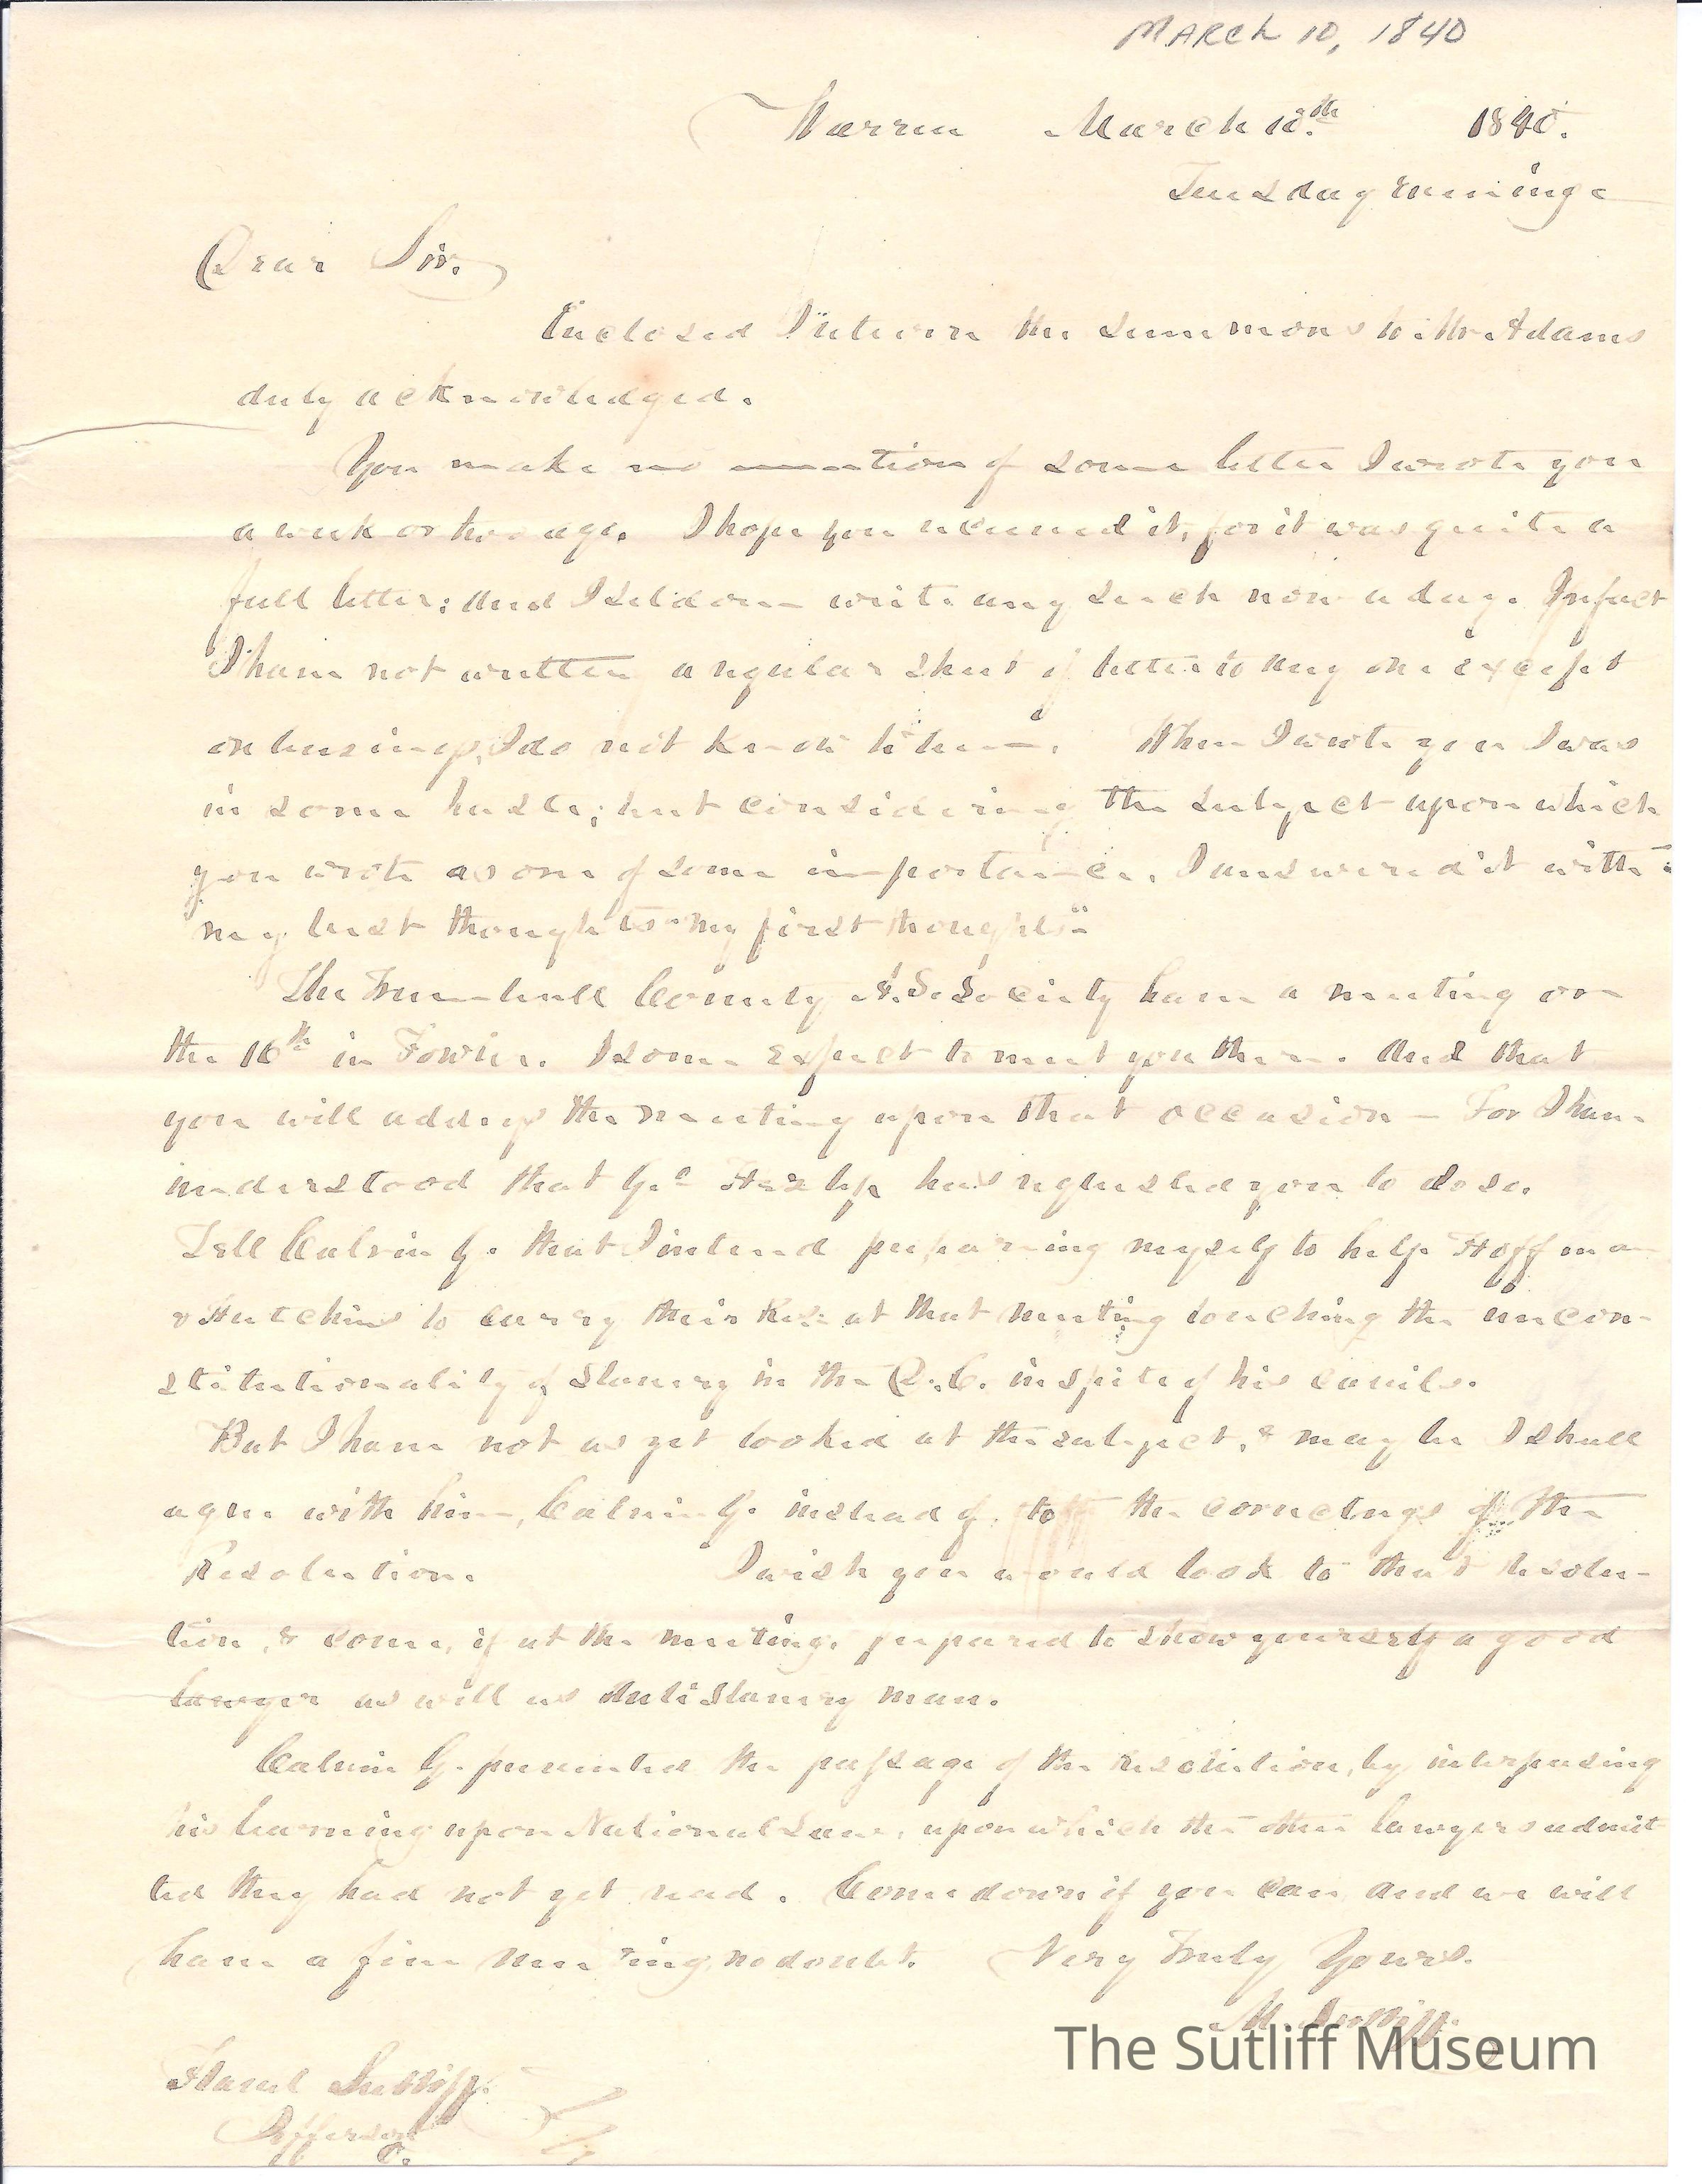 MARCH 10, 1840
Warren March 10th 1840.
Tuesday Evening
Dear Sir.
Enclosed I return the summons to Mr Adams
duly acknowledged.
You make no mention of some letter I wrote you
a week or two ago. I hope you received it, for it was quite a
full letter; And I seldom write any such now a day. In fact
I have not written a regular sheet of letter to any one except
on business, I do not know when. When I wrote you I was
in some haste; but considering the subject upon which
you wrote as one of some importance, I answered it with
my best thoughts "my first thoughts"
The Trumbull County A.S. Society have a meeting on
the 16th in Fowler. I some expect to meet you there. And that
you will address the meeting upon that occasion — For I have
understood that Geo Hezlep has requested you to do so.
Tell Calvin G. that I intend preparing myself to help Hoffman
& Hutchins to carry their Res. at that meeting touching the uncon-
stitutionality of Slavery in the D.C. in spite of his cavils.
But I have not as yet looked at the subject, & may be I shall
agree with him, Calvin G. instead of to the correctness of the
Resolution. I wish you would look to that resolu-
tion, & come, if at the meeting, prepared to show yourself a good
lawyer as well as AntiSlavery man.
Calvin G. prevented the passage of the resolution, by interposing
his learning upon National Law, upon which the other lawyers admit
ted they had not yet read. Come down if you can and we will
have a fine meeting, no doubt. Very Truly Yours.
M Sutliff.
The Sutliff Museum
Flavel Sutliff.
Jefferson
O.